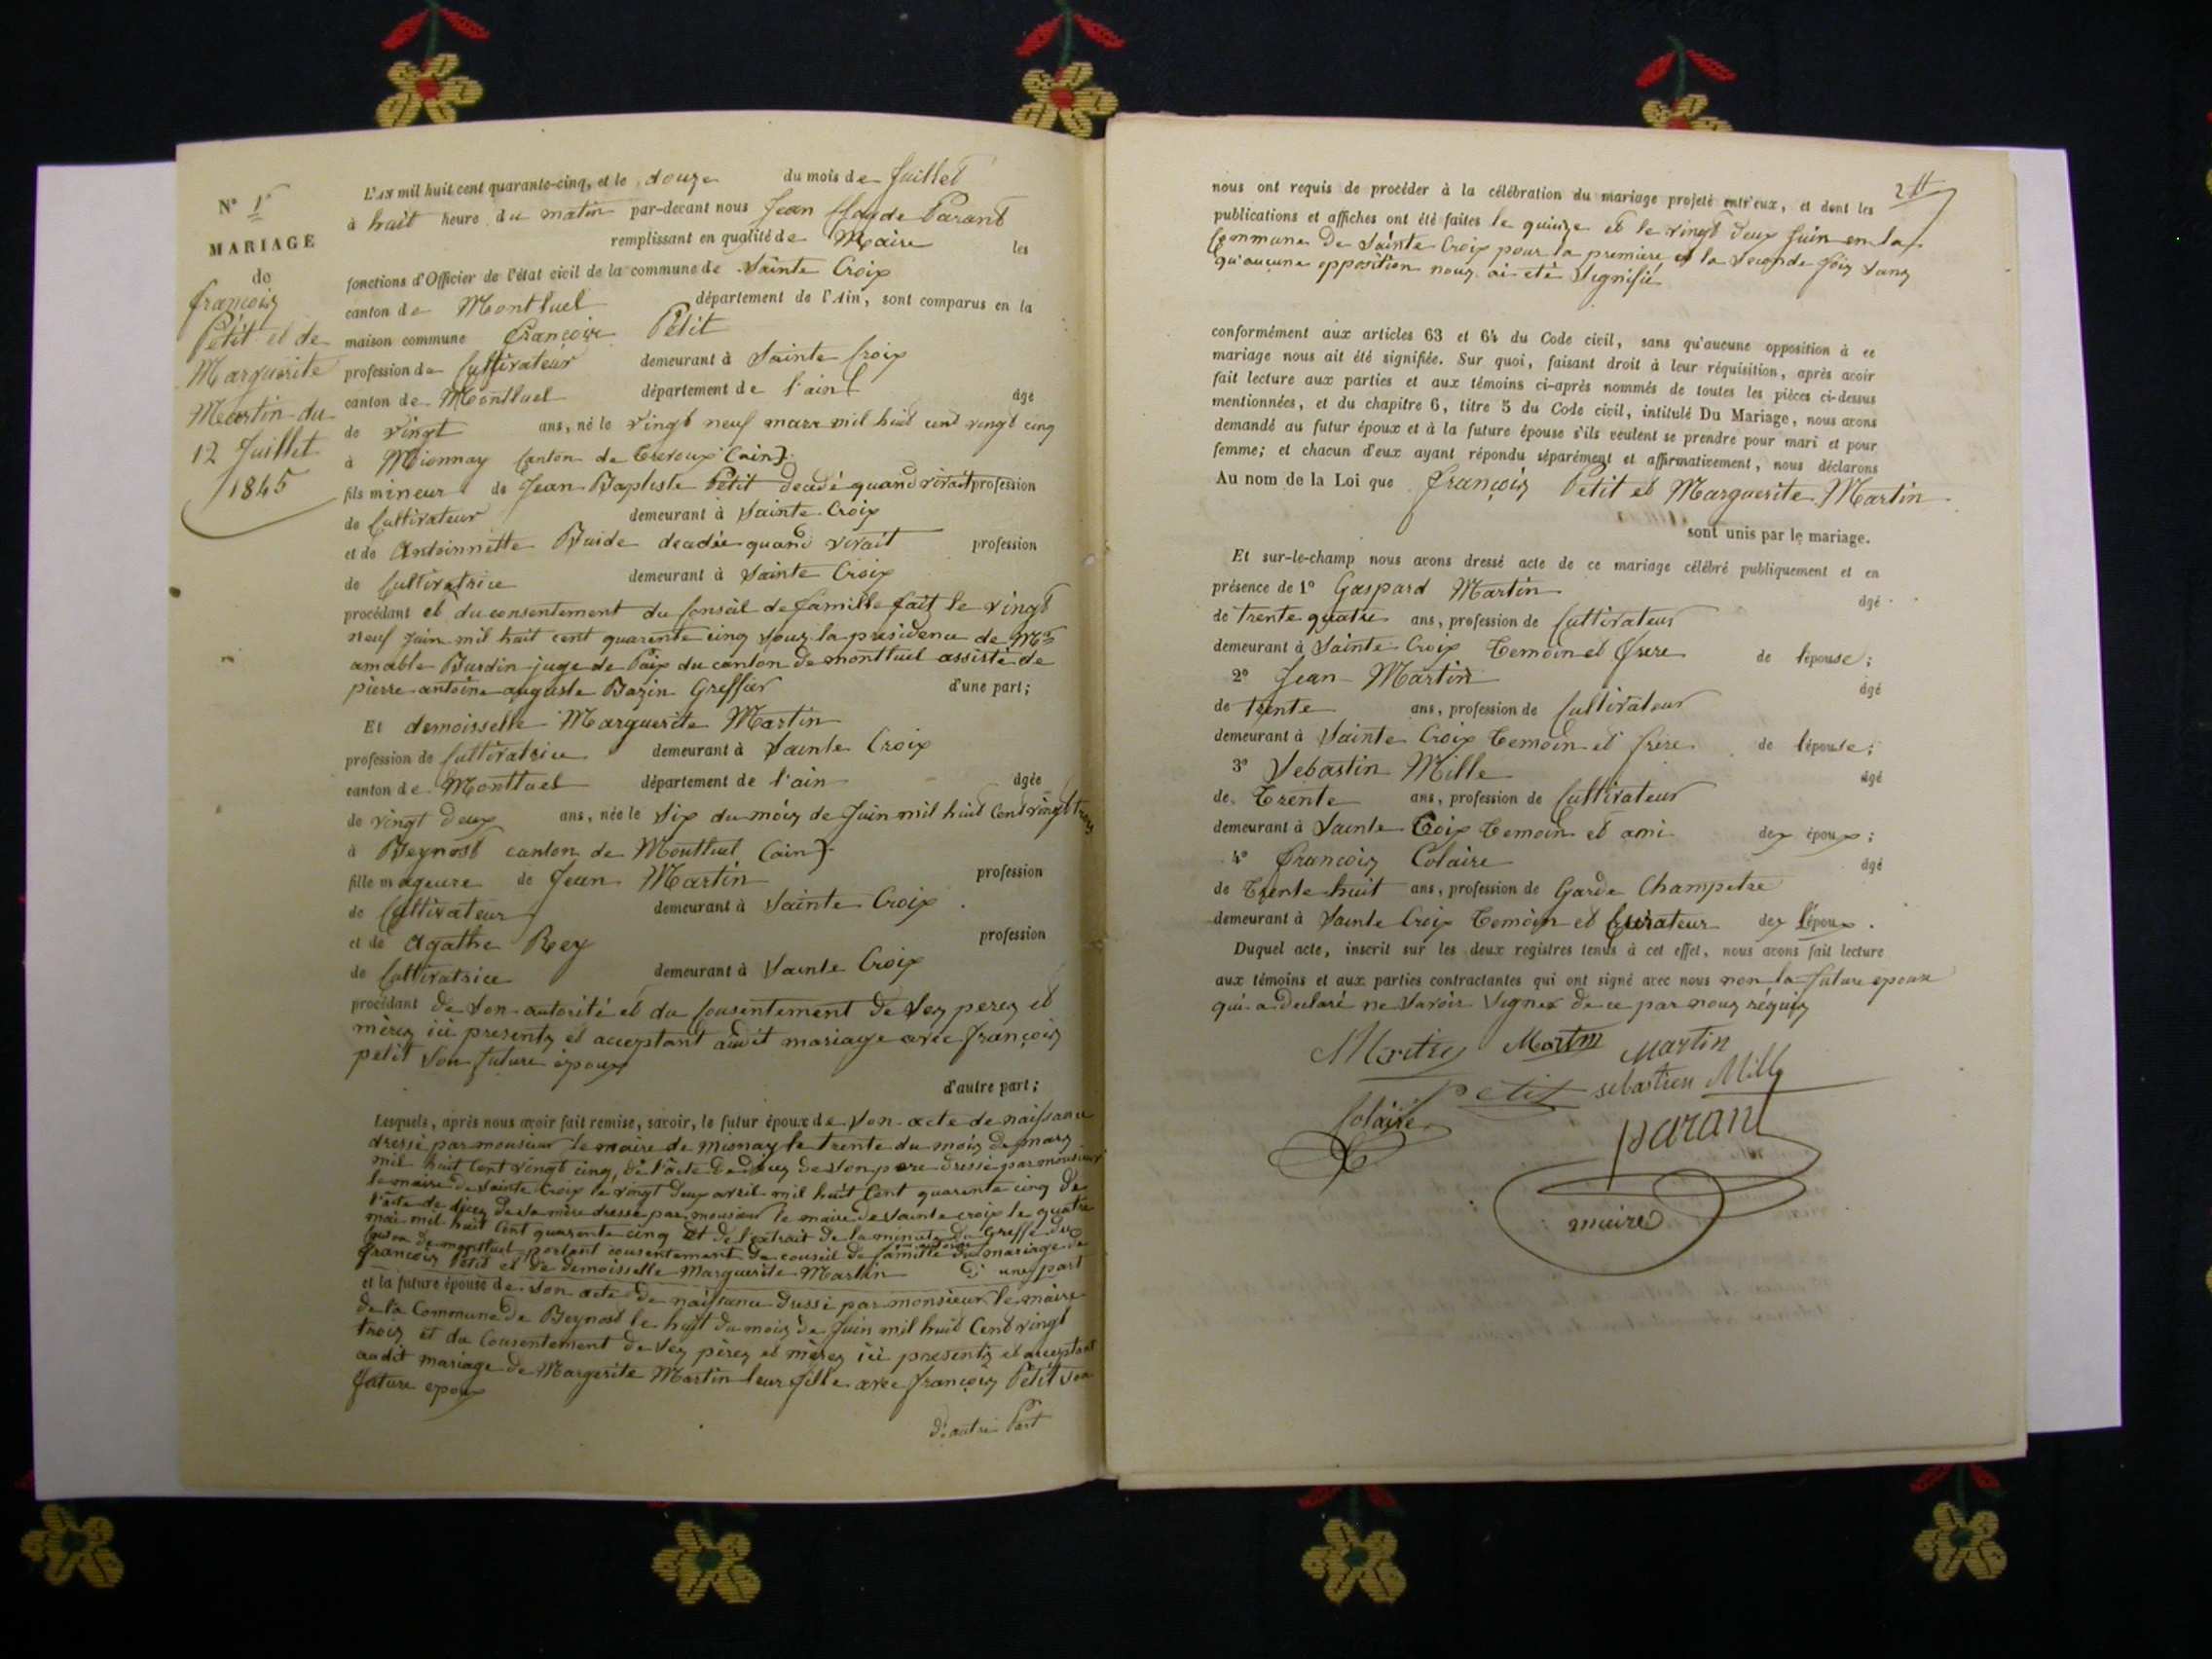 N° 1er
MARIAGE
de
françois
Petit et de
Marguerite
Martin du
12 Juillet
1845
L'AN mil huit cent quarante-cinq, et le douze du mois de Juillet
à huit heure du matin par-devant nous Jean Claude Parant
remplissant en qualité de Maire les
fonctions d'Officier de l'état civil de la commune de Sainte Croix
canton de Montluel département de l'Ain, sont comparus en la
maison commune François Petit
profession de Cultivateur demeurant à Sainte Croix
canton de Montluel département de l'ain âgé
de vingt ans, né le vingt neuf mars mil huit cent vingt cinq
à Mionnay Canton de Trevoux (ain)
fils mineur de Jean Baptiste Petit decedé quand vivait profession
de Cultivateur demeurant à Sainte Croix
et de Antoinnette Buide decadée quand vivait profession
de Cultivatrice demeurant à Sainte Croix
procédant et du consentement du Conseil de famille fait le vingt
neuf Juin mil huit cent quarente cinq sous la presidence de Mr
amable Burdin juge de Paix du canton de montluel assisté de
pierre antoine auguste Bazin Greffier d'une part;
Et demoisselle Marguerite Martin
profession de Cultivatrice demeurant à Sainte Croix
canton de Montluel département de l'ain âgée
de vingt deux ans, née le Six du mois de Juin mil huit Cent vingt trois
à Beynost canton de Montluel (ain)
fille mageure de Jean Martin profession
de Cultivateur demeurant à Sainte Croix
et de Agathe Rey profession
de Cultivatrice demeurant à Sainte Croix
procédant de Son autorité et du Consentement de Ses peres et
mères ici presents et acceptant audit mariage avec françois
petit Son future époux
d'autre part;
Lesquels, après nous avoir fait remise, savoir, le futur époux de Son acte de naissance
dressé par monsieur le maire de Mionay le trente du mois de mars
mil huit Cent vingt cinq, de l'acte de décès de Son pere dressé par monsieur
le maire de Sainte Croix le vingt deux avril mil huit Cent quarente cinq de
l'acte de décès de Sa mère dressé par monsieur le maire de Sainte croix le quatre
mai mil huit Cent quarente cinq et de l'extrait de la minute du Greffe du
Canton de montluel portant consentement du conseil de famille du mariage de
françois Petit et de demoisselle Marguerite Martin d'une part
et la future épouse de Son acte de naissance dressé par monsieur le maire
de la Commune de Beynost le huit du mois de Juin mil huit Cent vingt
trois et du Consentement de Ses pères et mères ici presents et acceptant
audit mariage de Margerite Martin leur fille avec françois Petit son
future epoux
d'autre Part
2
nous ont requis de procéder à la célébration du mariage projeté entr'eux, et dont les
publications et affiches ont été faites le quinze et le vingt deux Juin en la
Commune de Sainte Croix pour la premiere et la Seconde fois Sans
qu'aucune opposition nous ai eté Signifié
conformément aux articles 63 et 64 du Code civil, sans qu'aucune opposition à ce
mariage nous ait été signifiée. Sur quoi, faisant droit à leur réquisition, après avoir
fait lecture aux parties et aux témoins ci-après nommés de toutes les pièces ci-dessus
mentionnées, et du chapitre 6, titre 5 du Code civil, intitulé Du Mariage, nous avons
demandé au futur époux et à la future épouse s'ils veulent se prendre pour mari et pour
femme; et chacun d'eux ayant répondu séparément et affirmativement, nous déclarons
Au nom de la Loi que François Petit et Marguerite Martin
sont unis par le mariage.
Et sur-le-champ nous avons dressé acte de ce mariage célébré publiquement et en
présence de 1° Gaspard Martin âgé
de trente quatre ans, profession de Cultivateur
demeurant à Sainte Croix Temoin et frere de l'épouse;
2° Jean Martin âgé
de trente ans, profession de Cultivateur
demeurant à Sainte Croix Temoin et frère de l'épouse;
3° Sebastin Mille âgé
de Trente ans, profession de Cultivateur
demeurant à Sainte Croix Temoin et ami des époux;
4° François Colaire âgé
de Trente huit ans, profession de Garde Champetre
demeurant à Sainte Croix Temoin et Curateur des l'époux.
Duquel acte, inscrit sur les deux registres tenus à cet effet, nous avons fait lecture
aux témoins et aux parties contractantes qui ont signé avec nous non la future epouse
qui a declaré ne Savoir Signer de ce par nous requis
Martin Martin Martin
petit sebastien Mille
Colaire
parant
maire